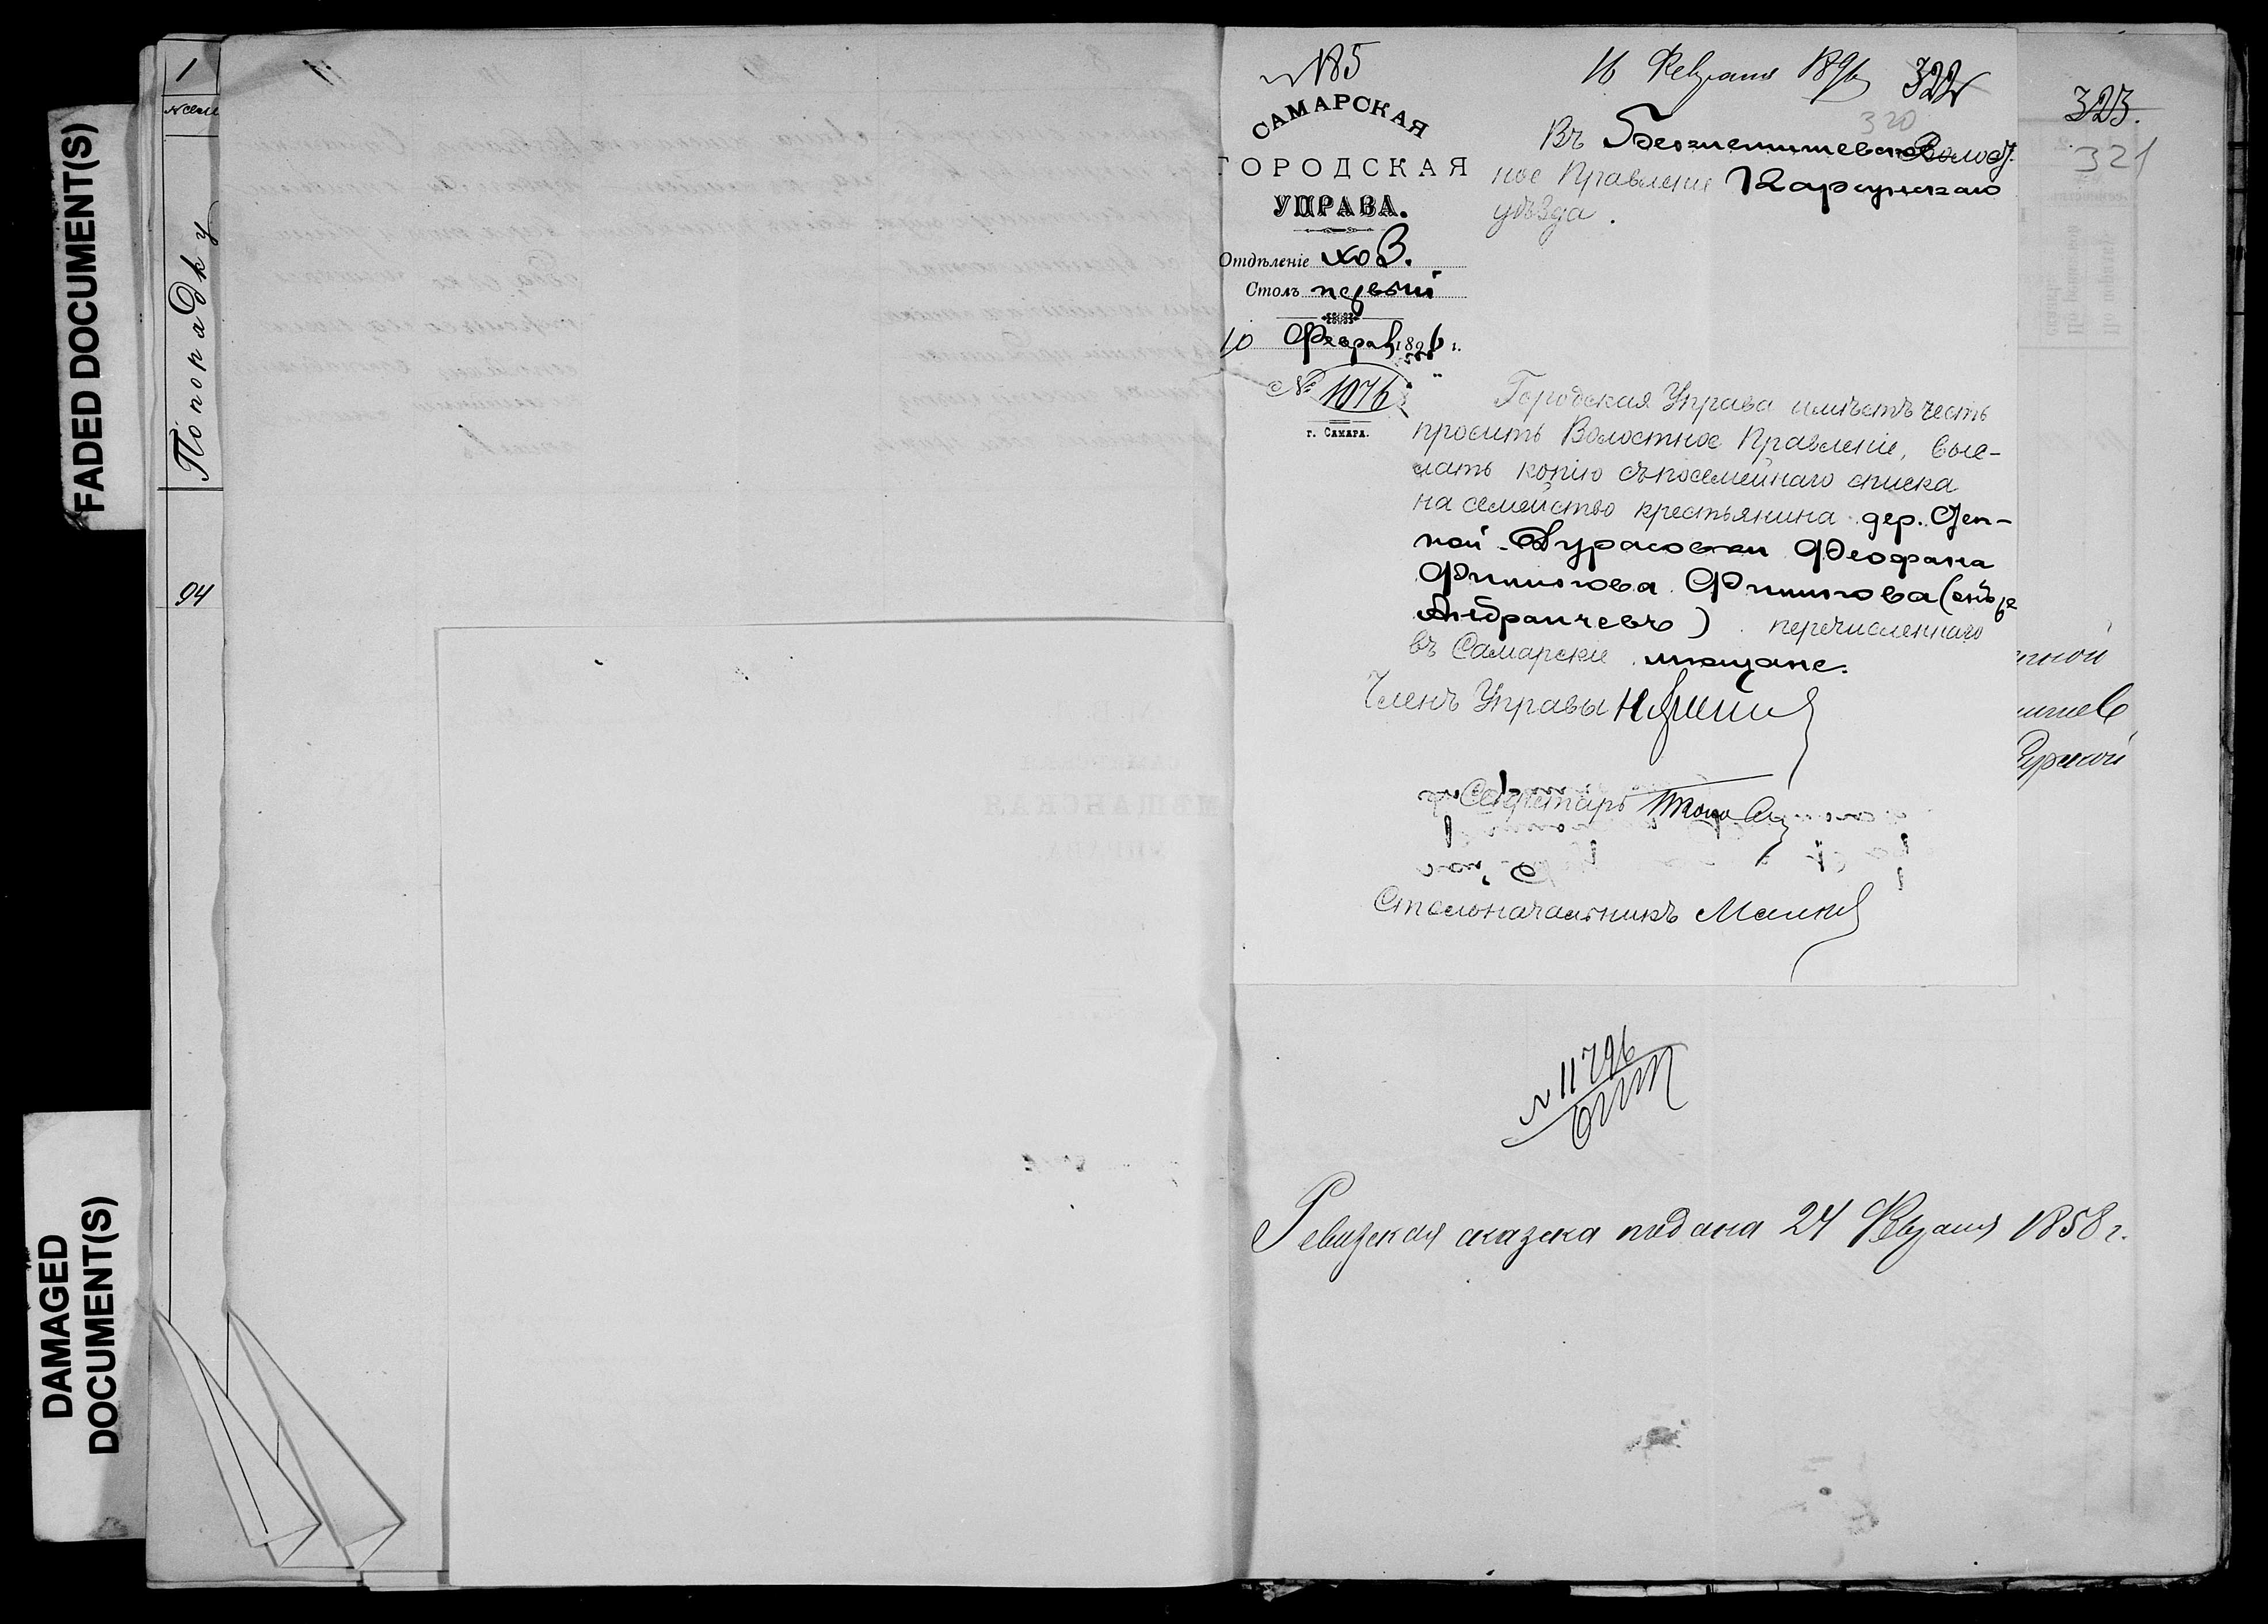 FADED DOCUMENT(S)
DAMAGED
DOCUMENT(S)
1
По порядку
94
№ 185
САМАРСКАЯ
ГОРОДСКАЯ
УПРАВА.
Отдѣленіе хоз.
Столъ первый
10 Февраля 1896 г.
№ 1076
г. САМАРА.
16 Февраля 1896
322
320
Въ Волост-
ное Правленіе Карсунскаго
уѣзда.
323.
321
Городская Управа имѣетъ честь
просить Волостное Правленіе, выс-
лать копію съ посемейнаго списка
на семейство крестьянина дер. Степ-
ной Дурасовки Феофана
Филипова Филипова (онъ же
Андраичевъ) перечисленнаго
въ Самарскіе мѣщане.
Членъ Управы
Секретарь
Столоначальникъ
№ 11796
Ревизская сказка подана 24 Февраля 1858 г.